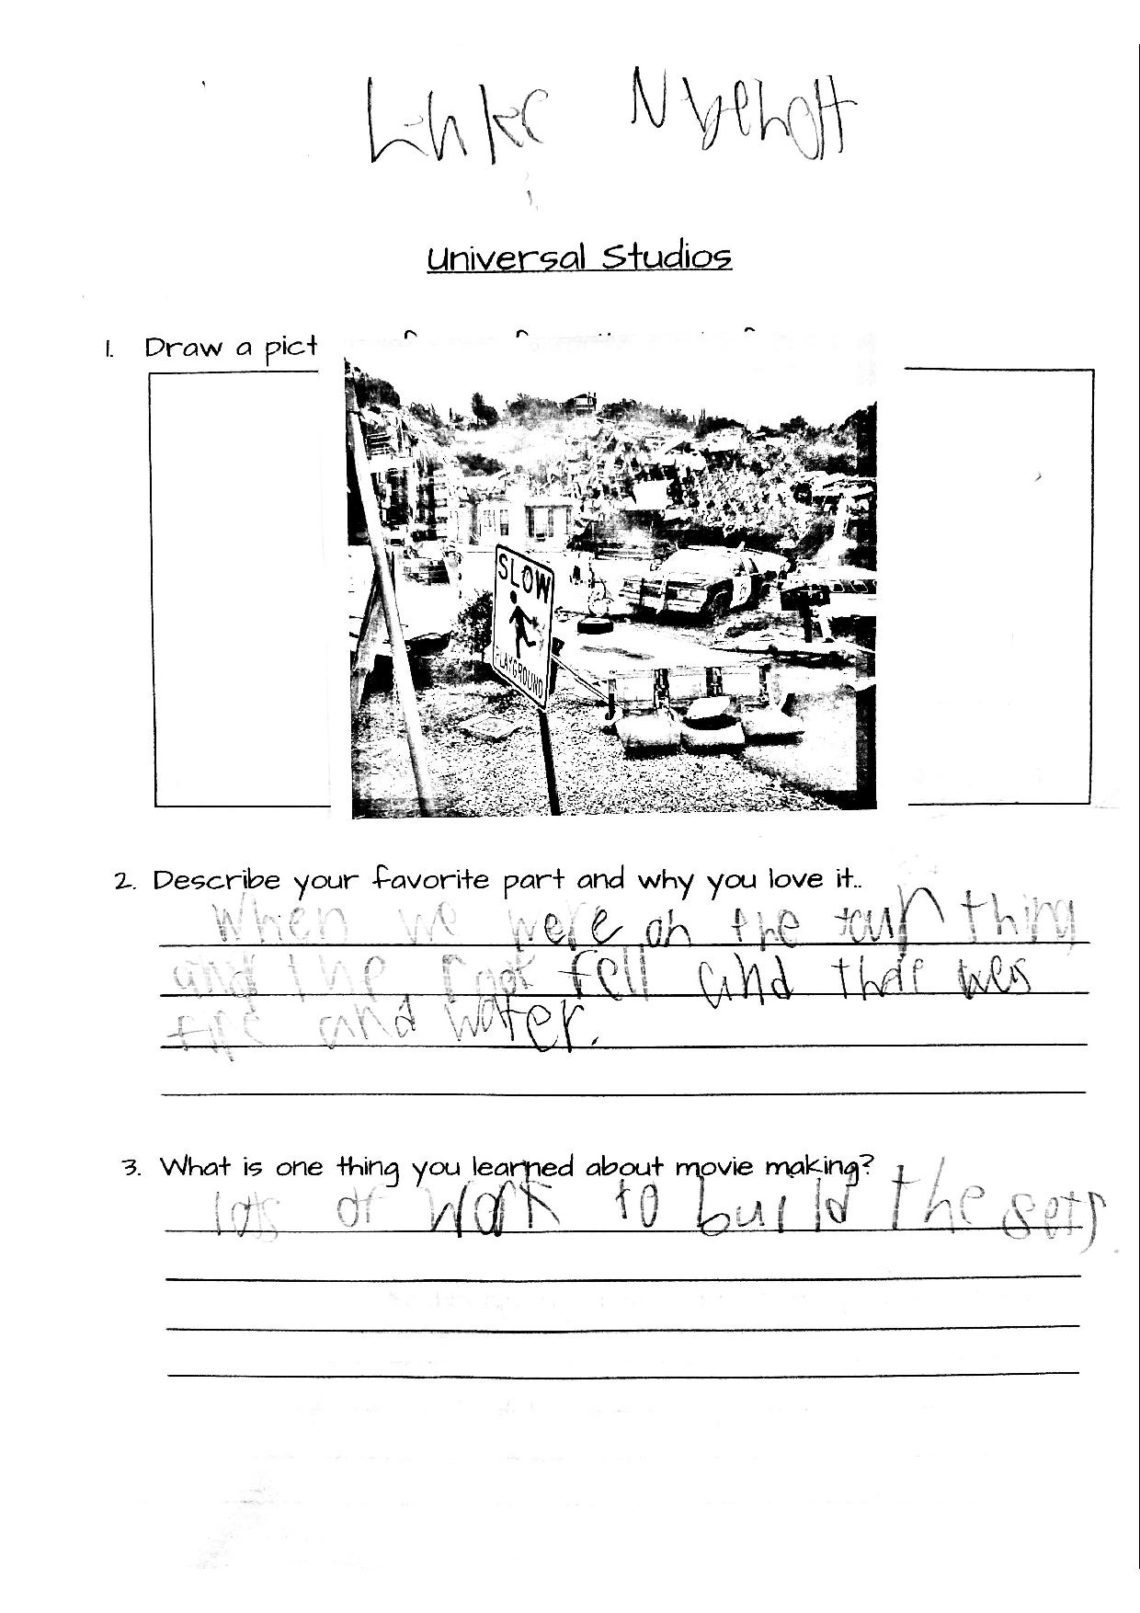 Universal Studios
1. Draw a pict
SLOW
PLAYGROUND
2. Describe your favorite part and why you love it..
When we were on the tour thing
and the roof fell and thair was
fire and water.
3. What is one thing you learned about movie making?
lots of work to build the sets.